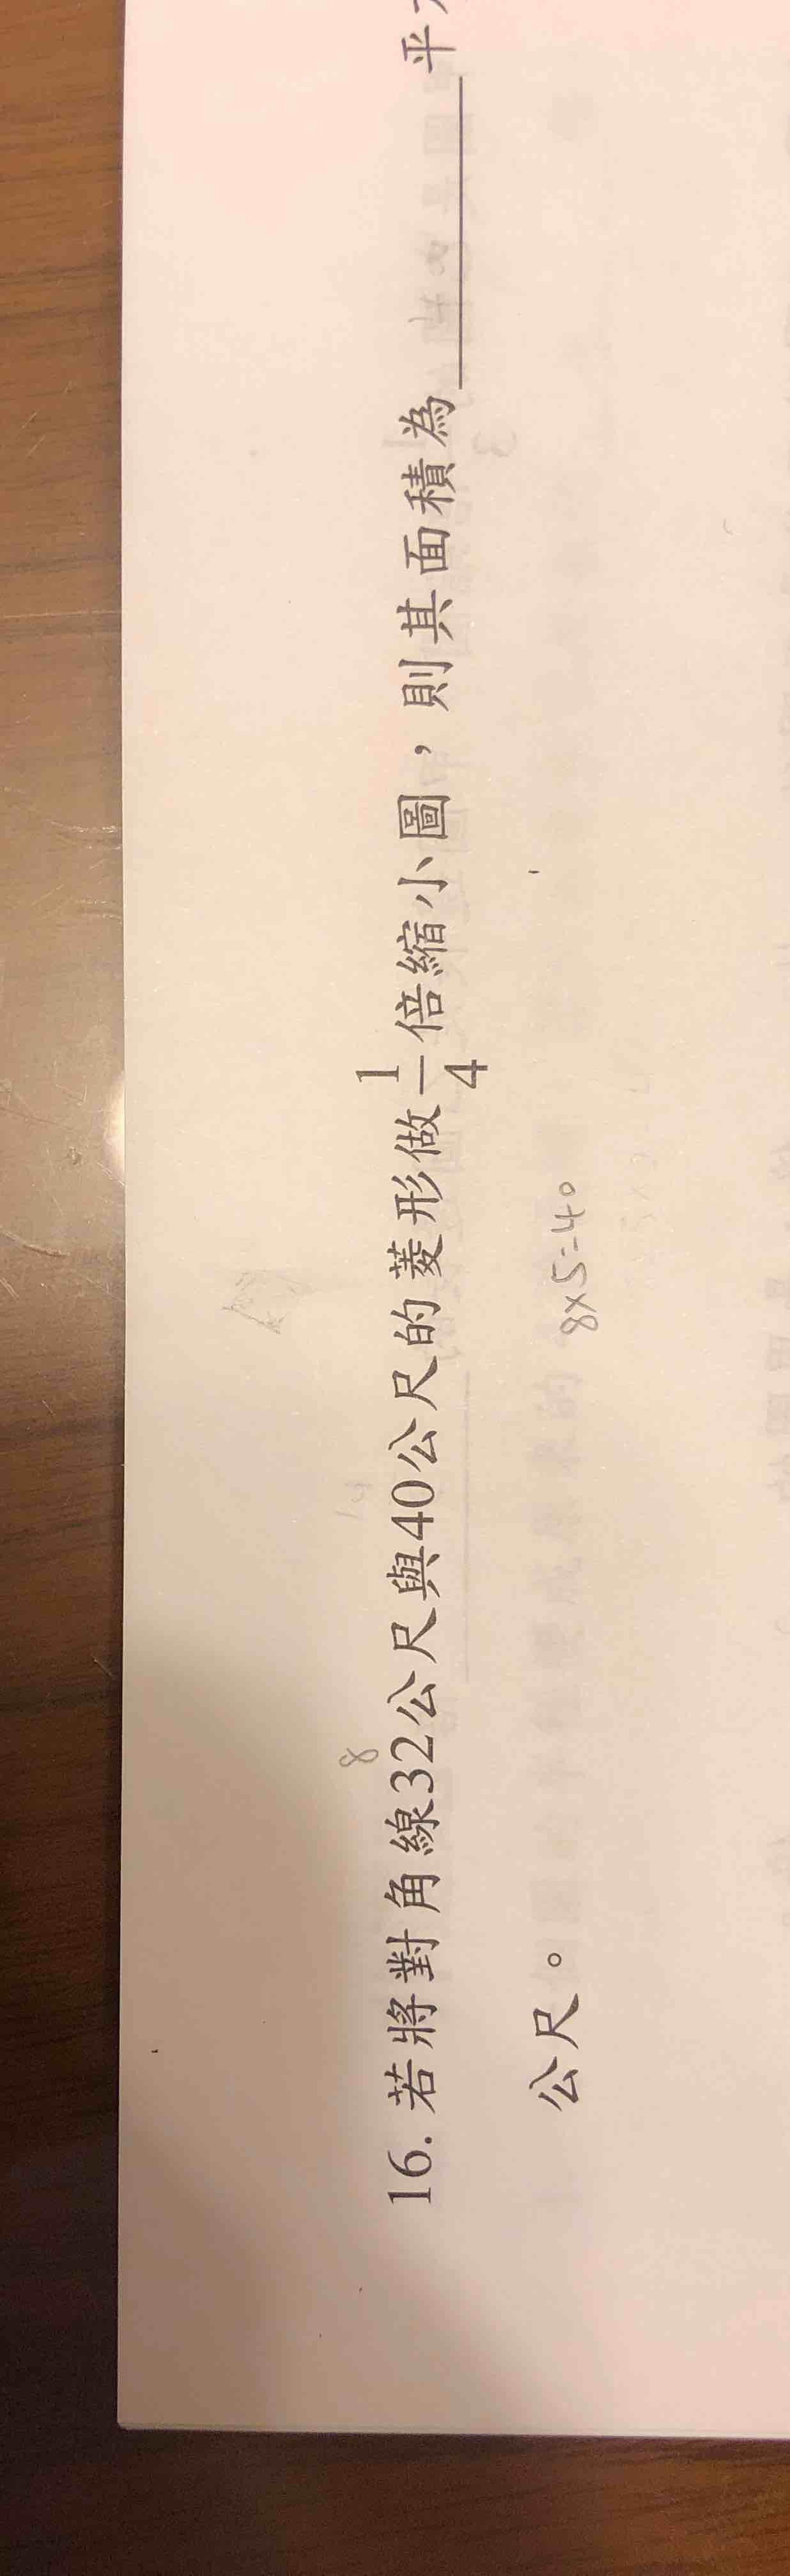 8
16. 若將對角線32公尺與40公尺的菱形做1/4倍縮小圖，則其面積為______平
公尺。
8×5=40